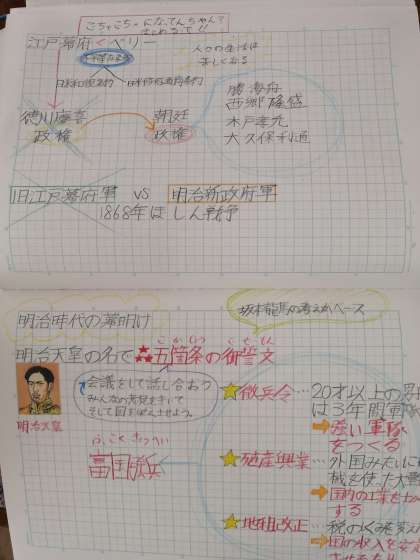 江戸幕府くペリー
人々の生活は
苦しくなる
日米和親条約
日米修好通商条約
徳川慶喜
政権
朝廷
政権
勝海舟
西郷隆盛
木戸孝允
大久保利通
旧江戸幕府軍 vs 明治新政府軍
1868年ぼしん戦争
坂本龍馬の考えがベース
明治時代の幕明け
明治天皇の名で
五箇条の御誓文
ごかじょう ごせいもん
明治天皇
会議をして話し合おう
みんなの意見をきいて
そして国をはってんさせよう。
ふこくきょうへい
富国強兵
徴兵令…20才以上の男
は3年間軍隊
強い軍隊
をつくる
殖産興業…外国みたいに
械を使った大
国内の工業をさかん
する
地租改正…税のしくみ変え
国の収入を安